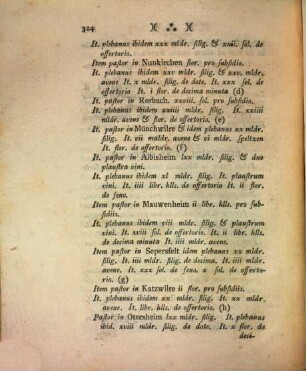 324
It. plebanus ibidem xxx mldr. silig. & xxii. sol. de
offertorio.
Item pastor in Nunkirchen flor. pro subsidio.
It. plebanus ibidem xxv mldr. silig. & xxv. mldr.
avene It x mldr. silig. de dote. It. xxx sol. de
offertorio It. i flor. de decima minuta (d)
It. pastor in Rorbach. xxviii. sol. pro subsidio.
It. plebanus ibidem xxiiii mldr. silig. It. xxiiii
mldr. avene & flor. de offertorio. (e)
It. pastor in Münchwilre & idem plebanus xx mldr.
silig. It. vii maldr. avene & vi mldr. speltzen
It. flor. de offertorio. (f)
It. pastor in Albisheim lxx mldr. silig. & duo
plaustra vini.
It. plebanus ibidem xl mldr. silig. It. plaustrum
vini. It. iiii libr. hlls. de offertorio It. ii flor.
de feno.
It. pastor in Mauwenheim ii libr. hlls. pro sub-
sidiis.
It. plebanus ibidem viii mldr. silig. & plaustrum
vini. It. xvii sol. de offertorio. It. ii libr. hlls.
de decima minuta It. iiii mldr. aveni.
Item pastor in Sepersfelt idem plebanus xx mldr.
silig. It. iiii mldr. de decima. It. iiii mldr.
avene. It. xxx sol. de feno. x sol. de offerto-
rio. (g)
Item pastor in Katzwilre ii flor. pro subsidiis.
It. plebanus ibidem xx mldr. silig. It. xx mldr.
avene. It. libr. hlls. de offertorio. (h)
Pastor in Otersheim lxx mldr. silig. It. plebanus
ibid. xviii mldr. silig. de dote. It. x flor. de
deci-